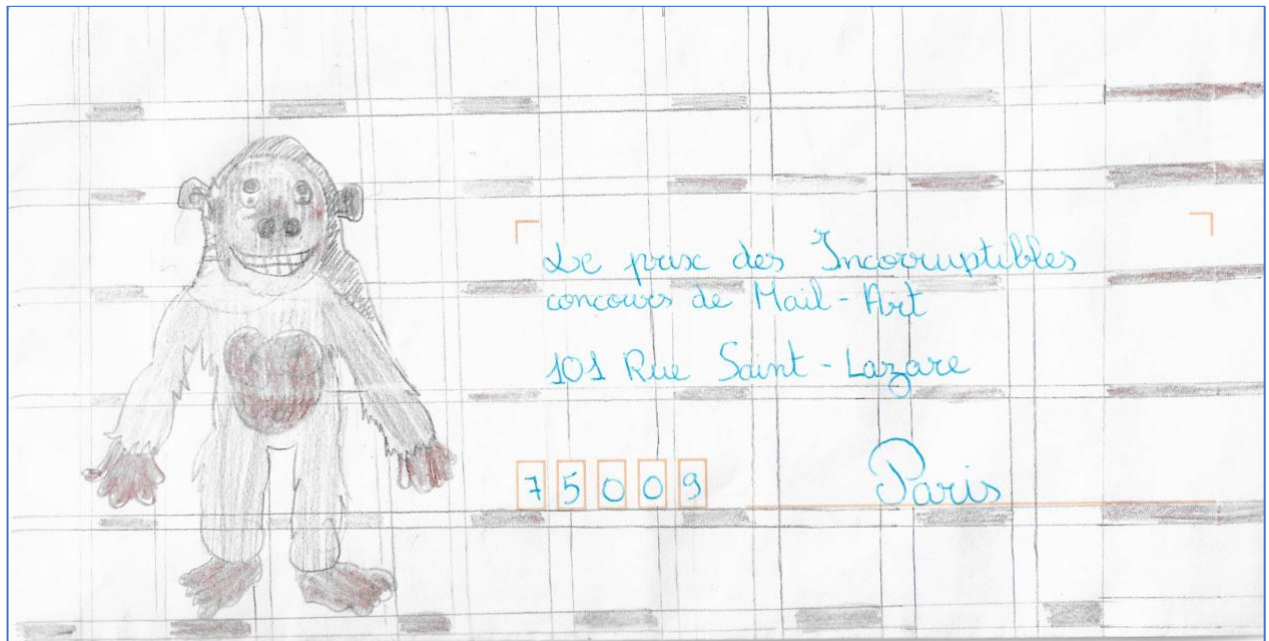 Le prix des Incorruptibles
concours de Mail-Art
101 Rue Saint-Lazare
75009 Paris